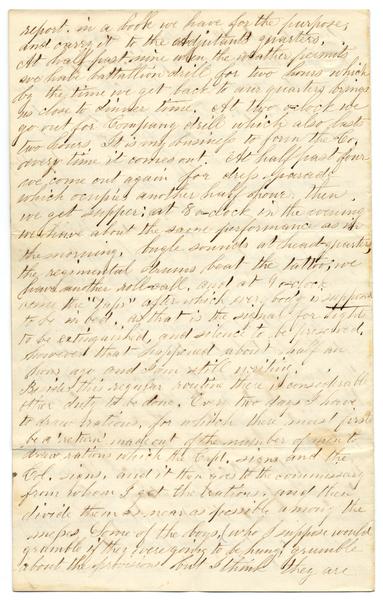 report. in a book we have for the purpose,
and carry it to the adjutants quarters.
At half past nine when the weather permits
we have battallion drill for two hours which
by the time we get back to our quarters brings
us close to dinner time. At two o-clock we
go out for Company drill which also lasts
two hours. It is my business to form the Co.
every time it comes out. At half past four
we come out again for dress parade
which occupies another half hour. then
we get supper; at 8 o-clock in the evening
we have about the same performance as in
the morning. bugle sounds at head quarters,
the regimental drums beat the tattoo, we
have another roll call. and at 9 o-clock
comes the "taps" after which every body is supposed
to be in bed, as that is the signal for lights
to be extinguished, and silence to be preserved.
however that happened about half an
hour ago and I am still writing.
Besides this regular routine there is considerable
other duty to be done. Every two days I have
to draw rations, for which there must first
be a "return" made out of the number of men to
draw rations which the Capt. signs and the
Col. signs. and it then goes to the commissary
from whom I get the rations. and then
divide them as near as possible among the
messes. Some of the boys, (who I suppose would
grumble if they were going to be hung) grumble
about the provisions but I think they are